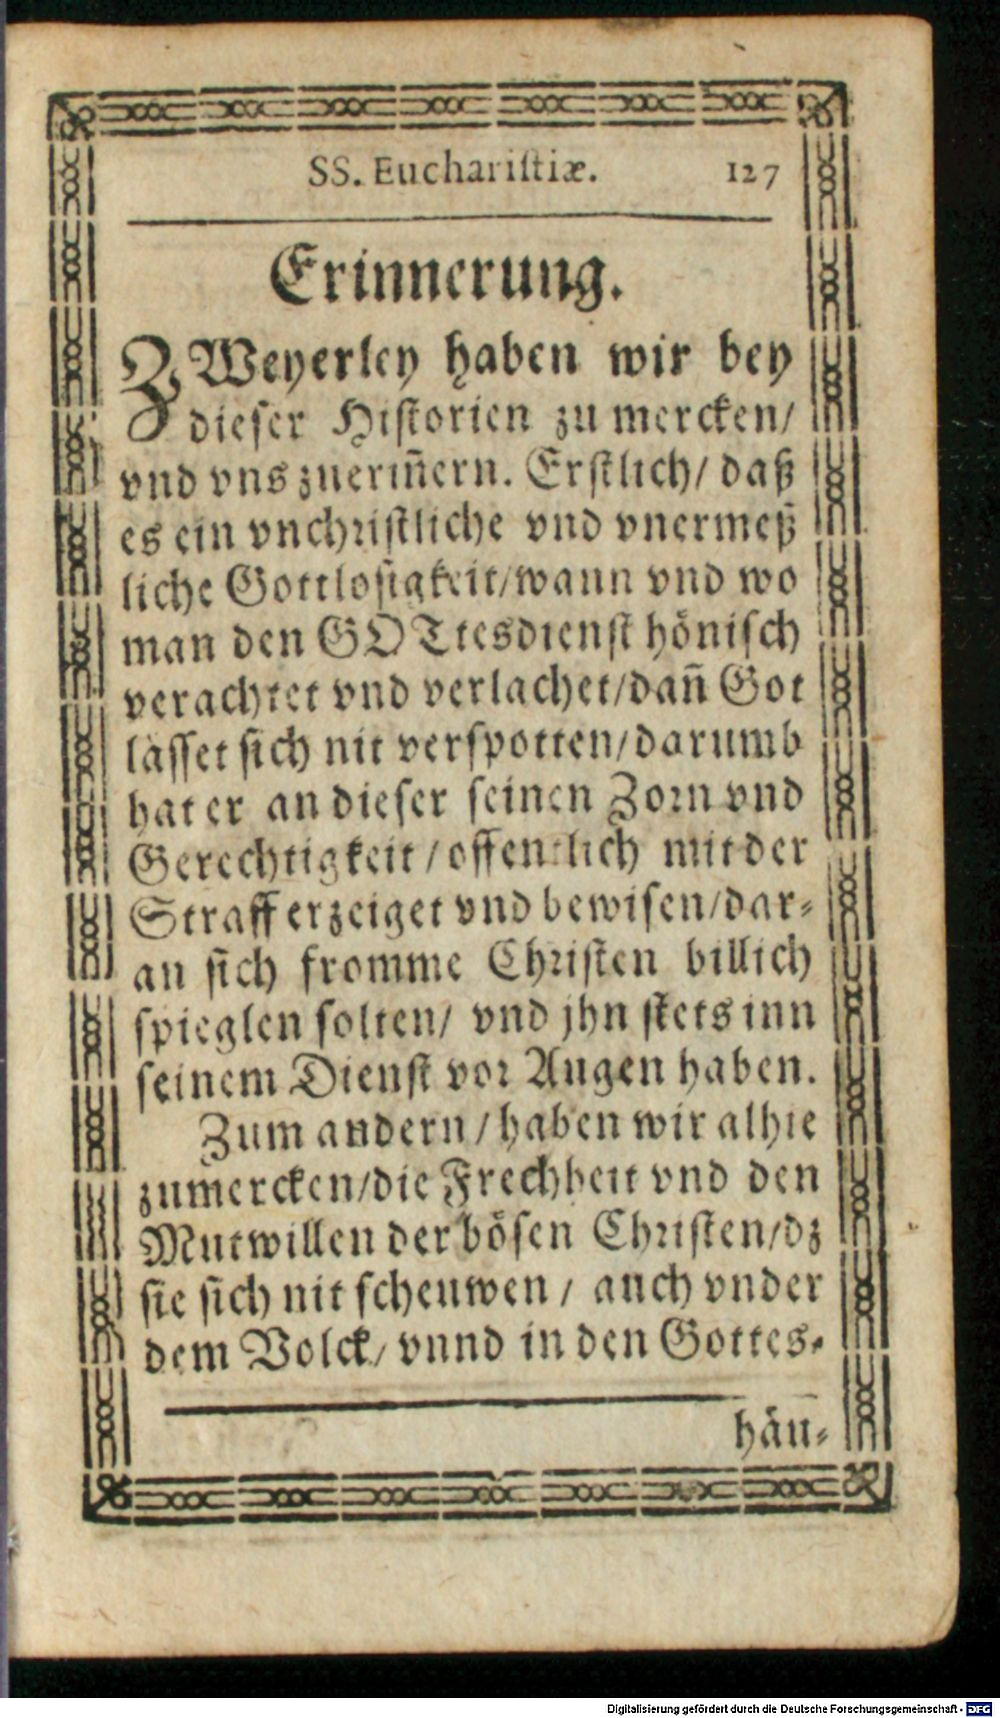 SS. Euchariſtiæ. 127
Erinnerung.
ZWeyerley haben wir bey
dieſer Hiſtorien zu mercken/
vnd vns zuerin̄ern. Erſtlich/ daß
es ein vnchriſtliche vnd vnermeß
liche Gottloſigkeit/wann vnd wo
man den GOTtesdienſt höniſch
verachtet vnd verlachet/dan̄ Got
läſſet ſich nit verſpotten/darumb
hat er an dieſer ſeinen Zorn vnd
Gerechtigkeit/offentlich mit der
Straff erzeiget vnd bewiſen/dar-
an ſich fromme Chriſten billich
ſpieglen ſolten/ vnd jhn ſtets inn
ſeinem Dienſt vor Augen haben.
Zum andern/haben wir alhie
zumercken/die Frechheit vnd den
Mutwillen der böſen Chriſten/dz
ſie ſich nit ſcheuwen/ auch vnder
dem Volck/ vnnd in den Gottes-
häu-
Digitalisierung gefördert durch die Deutsche Forschungsgemeinschaft - DFG